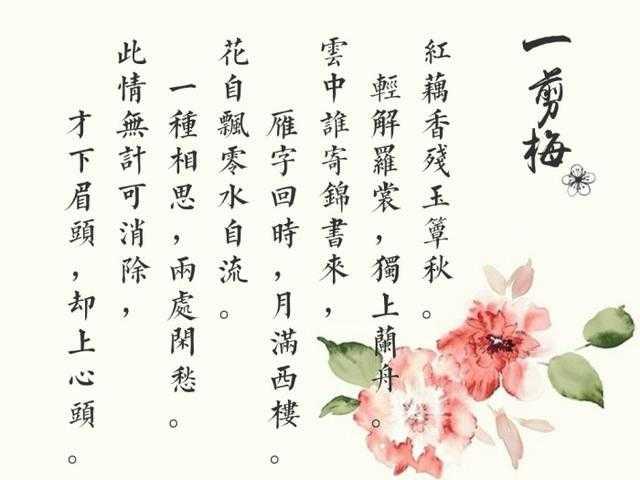 一剪梅
紅藕香殘玉簟秋。
輕解羅裳，獨上蘭舟。
雲中誰寄錦書來，
雁字回時，月滿西樓。
花自飄零水自流。
一種相思，兩處閑愁。
此情無計可消除，
才下眉頭，却上心頭。